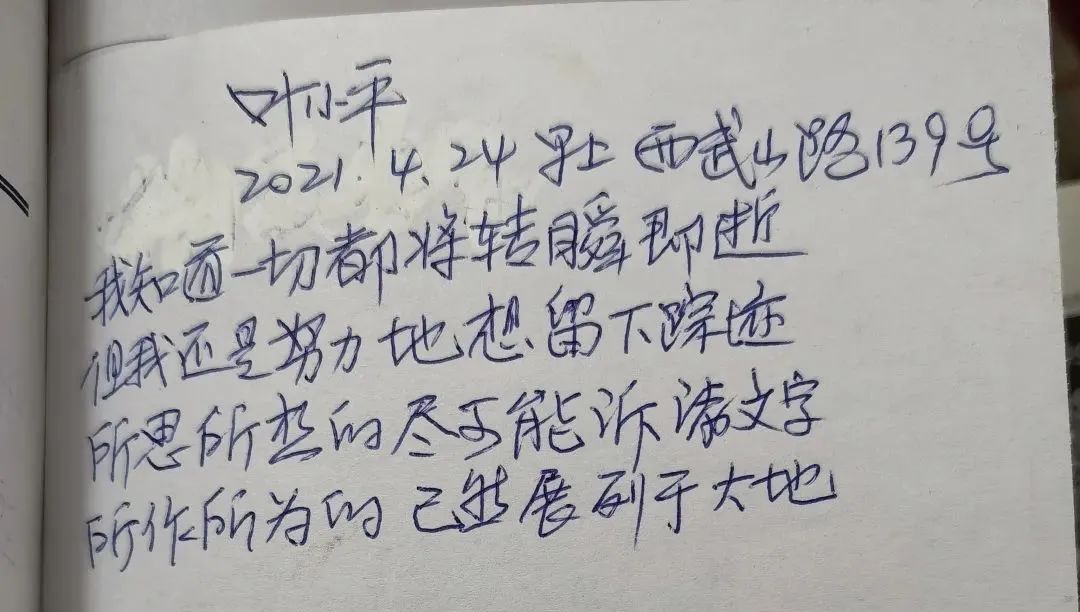 叶小平
2021.4.24 早上 西武当山路139号
我知道一切都将转瞬即逝
但我还是努力地想留下踪迹
所思所想的尽可能诉诸文字
所作所为的已然展列于大地